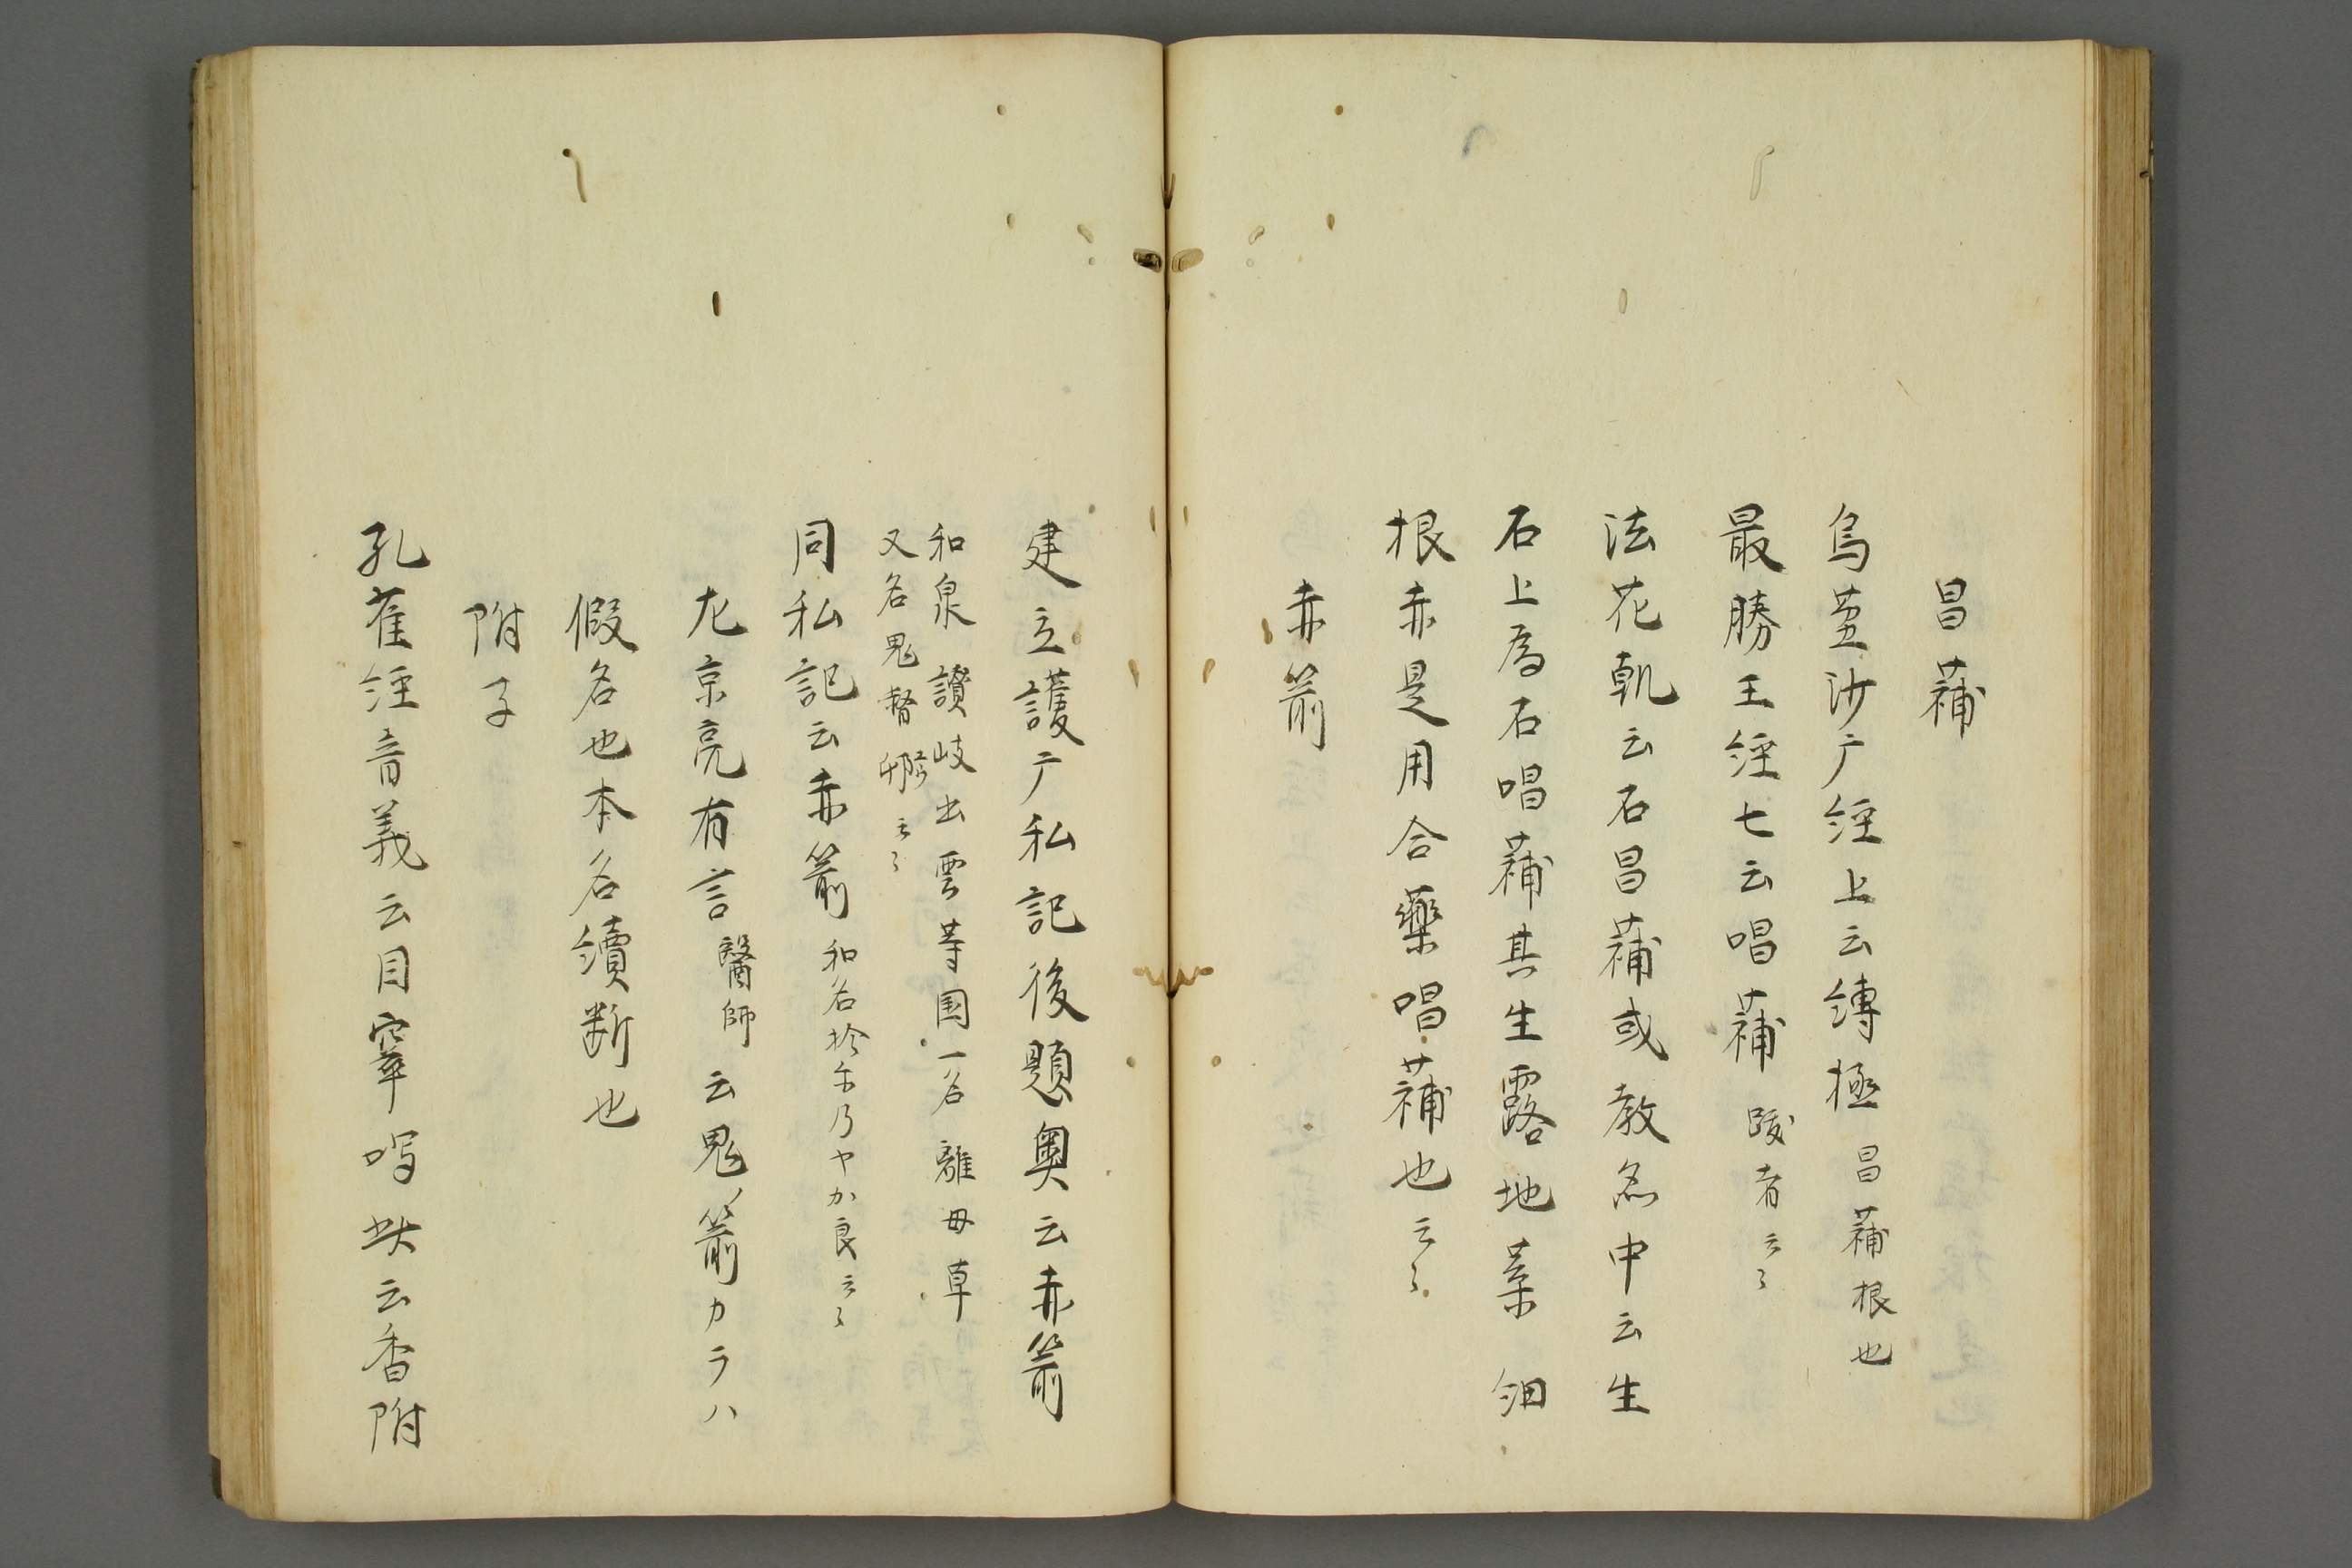 昌蒲
烏蒭沙广経上云縳極昌蒲根也
最勝王経七云唱蒲跋者云〻
法花軌云石昌蒲或教念中云生
石上為石唱蒲其生露地葉細
根赤是用合藥唱蒲也云〻
赤箭
建立護广私記後題奥云赤箭
和泉讃岐出雲等国一名離母草
又名鬼督郵云〻
同私記云赤箭和名於尓乃ヤか良云〻
左京亮有言醫師云鬼箭カラハ
假名也本名續断也
附子
孔雀経音義云目窣哆状云香附